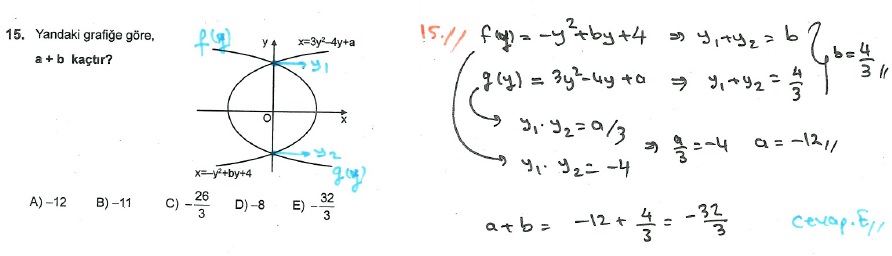 15. Yandaki grafiğe göre,
a + b kaçtır?
f(y)
y
x=3y²-4y+a
y₁
O
x
y₂
x=-y²+by+4
g(y)
A) -12 B) -11 C) -26/3 D) -8 E) -32/3
15.// f(y) = -y²+by+4 ⇒ y₁+y₂ = b
b=4/3 //
g(y) = 3y²-4y+a ⇒ y₁+y₂ = 4/3
y₁.y₂ = a/3
⇒ a/3 = -4 a = -12//
y₁.y₂ = -4
a+b = -12 + 4/3 = -32/3 Cevap.E//